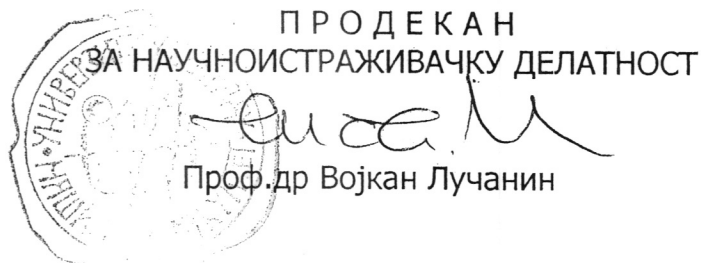 П Р О Д Е К А Н
ЗА НАУЧНОИСТРАЖИВАЧКУ ДЕЛАТНОСТ
Проф.др Војкан Лучанин